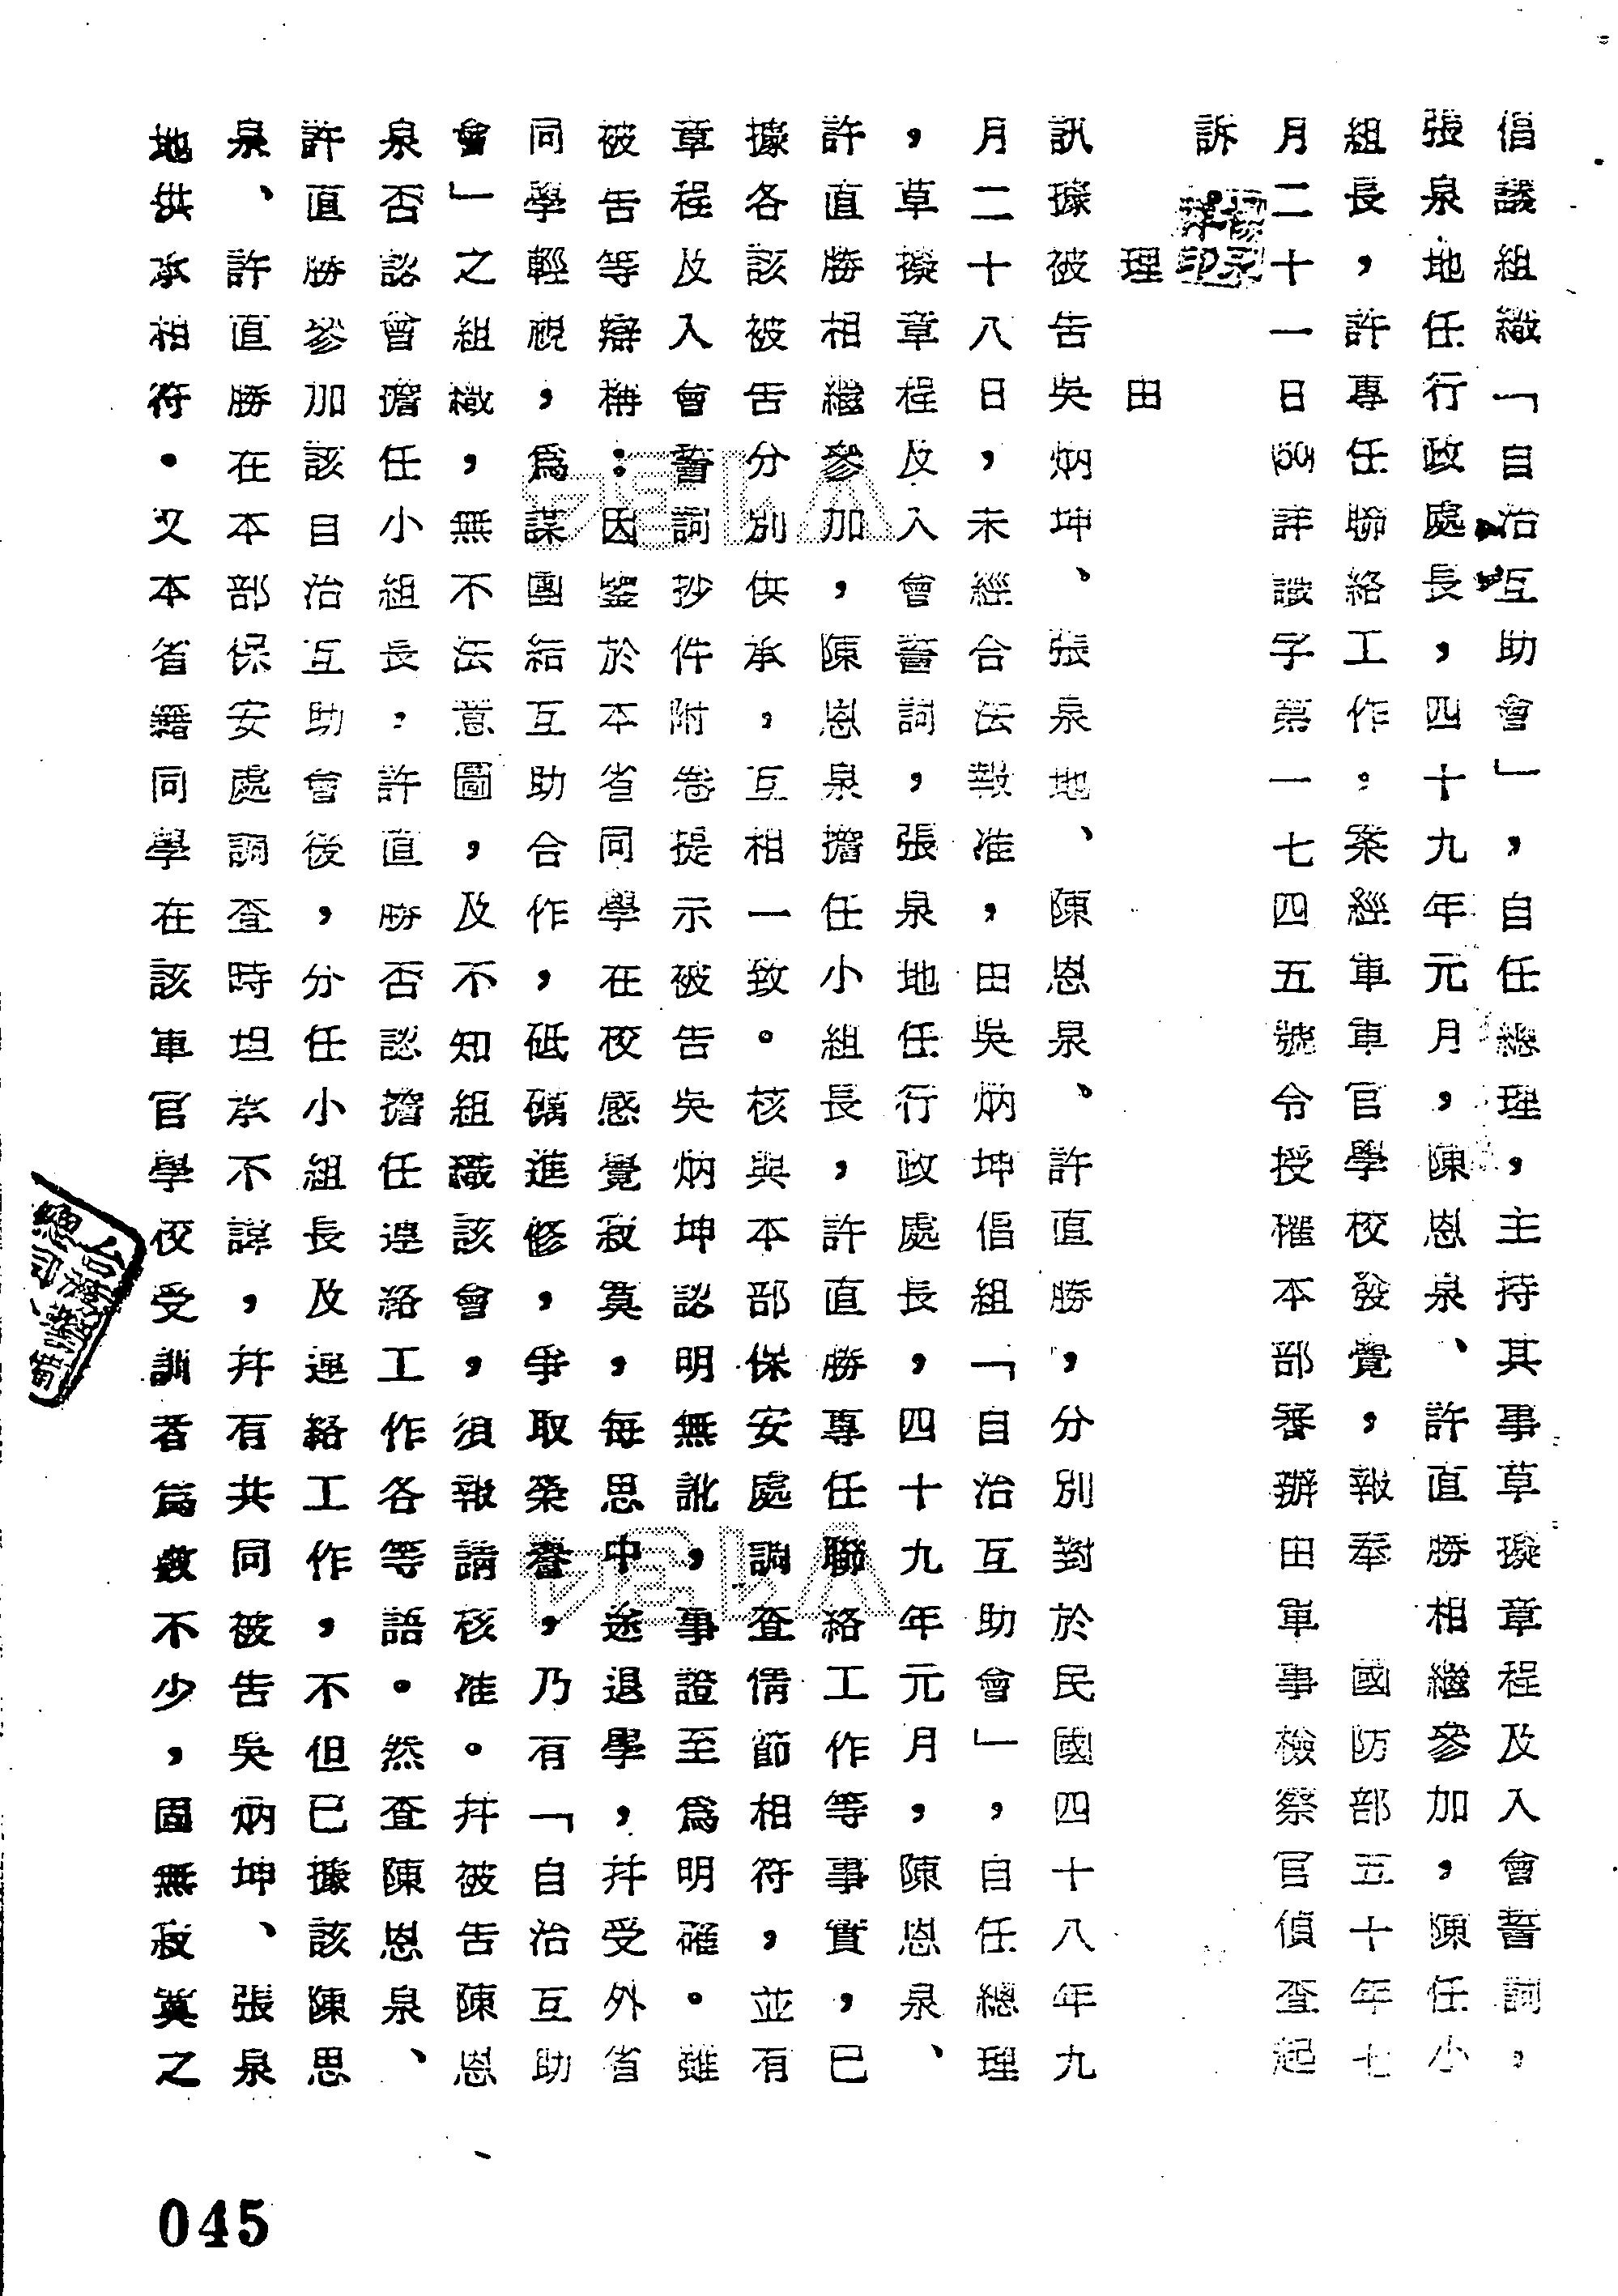 倡議組織「自治互助會」，自任總理，主持其事草擬章程及入會誓詞，
張泉地任行政處長，四十九年元月，陳恩泉、許直勝相繼參加，陳任小
組長，許專任聯絡工作。案經軍車官學校發覺，報奉　國防部五十年七
月二十一日(50)詳識字第一七四五號令授權本部審辦由軍事檢察官偵查起
訴
理　由
訊據被告吳炳坤、張泉地、陳恩泉、許直勝，分別對於民國四十八年九
月二十八日，未經合法報准，由吳炳坤倡組「自治互助會」，自任總理
，草擬章程及入會誓詞，張泉地任行政處長，四十九年元月，陳恩泉、
許直勝相繼參加，陳恩泉擔任小組長，許直勝專任聯絡工作等事實，已
據各該被告分別供承，互相一致。核與本部保安處調查情節相符，並有
章程及入會誓詞抄件附卷提示被告吳炳坤認明無訛，事證至為明確。雖
被告等辯稱：因鑒於本省同學在校感覺寂寞，每思中途退學，并受外省
同學輕視，為謀團結互助合作，砥礪進修，爭取榮譽，乃有「自治互助
會」之組織，無不法意圖，及不知組織該會，須報請核准。并被告陳恩
泉否認曾擔任小組長，許直勝否認擔任連絡工作各等語。然查陳恩泉、
許直勝參加該自治互助會後，分任小組長及連絡工作，不但已據該陳思
泉、許直勝在本部保安處調查時坦承不諱，并有共同被告吳炳坤、張泉
地供承相符。又本省籍同學在該軍官學校受訓者為數不少，固無寂寞之
045